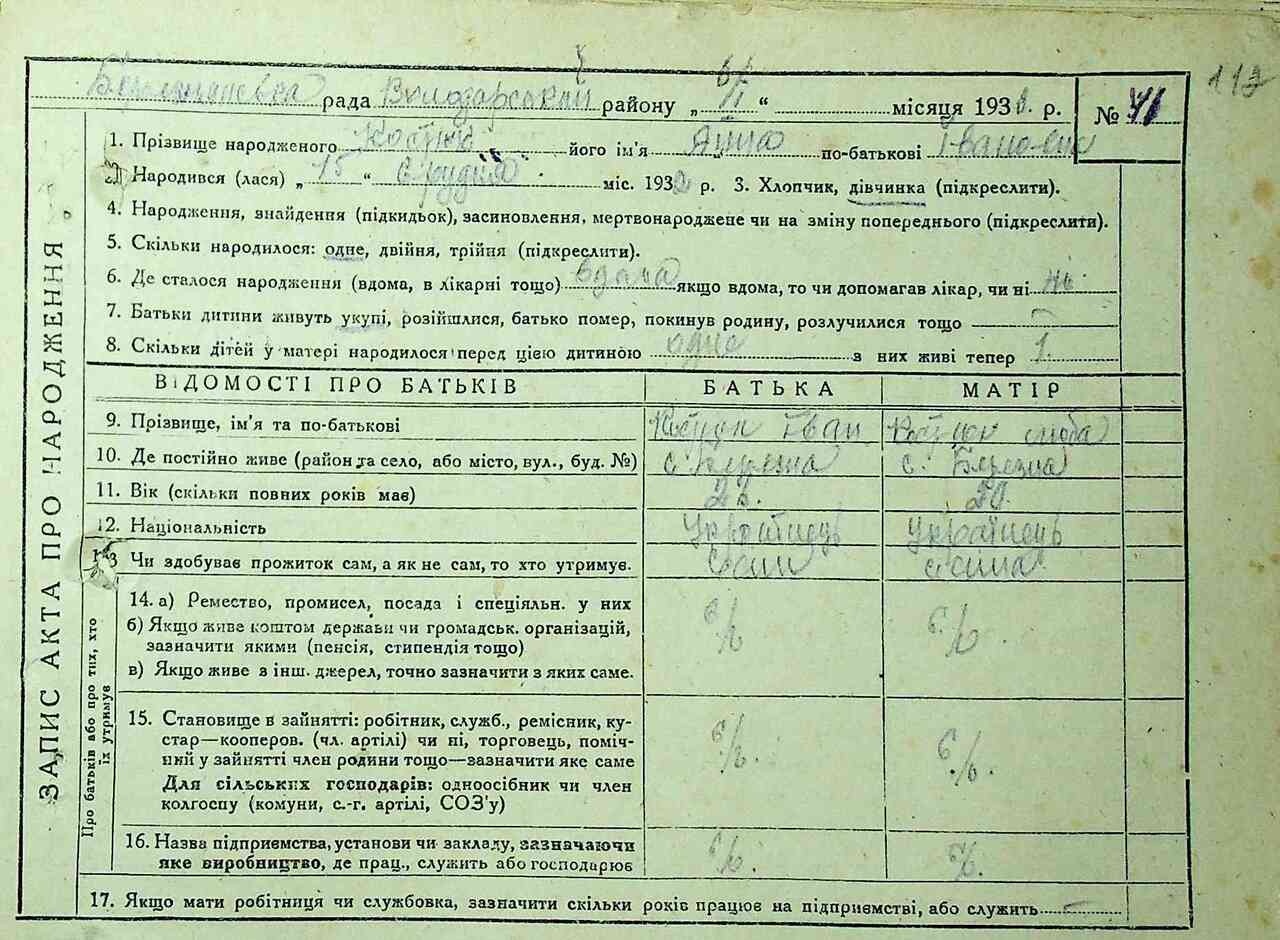 рада району „ “ місяця 193 р. №
1. Прізвище народженого його ім'я по-батькові Івановна
2. Народився (лася) „ 15 “ Грудня міс. 193 р. 3. Хлопчик, дівчинка (підкреслити).
4. Народження, знайдення (підкидьок), засиновлення, мертвонароджене чи на зміну попереднього (підкреслити).
5. Скільки народилося: одне, двійня, трійня (підкреслити).
6. Де сталося народження (вдома, в лікарні тощо) вдома якщо вдома, то чи допомагав лікар, чи ні ні
7. Батьки дитини живуть укупі, розійшлися, батько помер, покинув родину, розлучилися тощо —
8. Скільки дітей у матері народилося перед цією дитиною одно з них живі тепер 1.
ЗАПИС АКТА ПРО НАРОДЖЕННЯ
ВІДОМОСТІ ПРО БАТЬКІВ БАТЬКА МАТІР
9. Прізвище, ім'я та по-батькові Іван
10. Де постійно живе (район та село, або місто, вул., буд. №) с. Березна с. Березна
11. Вік (скільки повних років має) 20.
12. Національність Українець Українець
13 Чи здобуває прожиток сам, а як не сам, то хто утримує. Сам сама
Про батьків або про тих, хто їх утримує
14. а) Ремество, промисел, посада і спеціяльн. у них
б) Якщо живе коштом держави чи громадськ. організацій,
зазначити якими (пенсія, стипендія тощо)
в) Якщо живе з інш. джерел, точно зазначити з яких саме.
15. Становище в зайнятті: робітник, служб., ремісник, ку-
стар—кооперов. (чл. артілі) чи ні, торговець, поміч-
ний у зайнятті член родини тощо—зазначити яке саме
Для сільських господарів: одноосібник чи член
колгоспу (комуни, с.-г. артілі, СОЗ'у)
16. Назва підприємства, установи чи закладу, зазначаючи
яке виробництво, де прац., служить або господарює
17. Якщо мати робітниця чи службовка, зазначити скільки років працює на підприємстві, або служить —